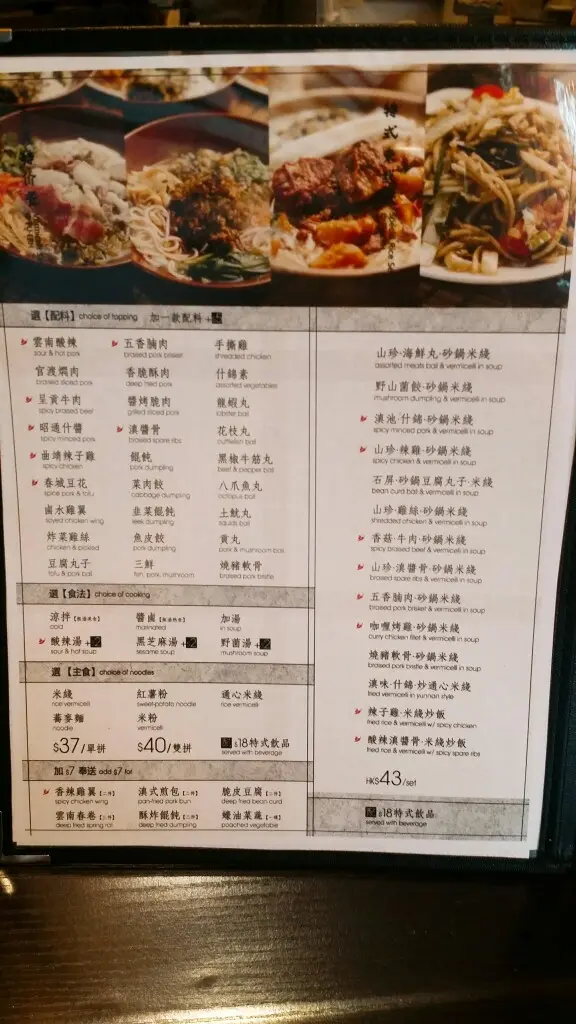 選【配料】choice of topping 加一款配料+
雲南酸辣 五香腩肉 手撕雞
sour & hot pork braised pork brisket shredded chicken
官渡燜肉 香脆酥肉 什錦素
braised sliced pork deep fried pork assorted vegetables
呈貢牛肉 醬烤脆肉 龍蝦丸
spicy braised beef grilled sliced pork lobster ball
昭通什醬 滇醬骨 花枝丸
spicy minced pork braised spare ribs cuttlefish ball
曲靖辣子雞 餛飩 黑椒牛筋丸
spicy chicken pork dumpling beef & pepper ball
春城豆花 菜肉餃 八爪魚丸
spice pork & tofu cabbage dumpling octopus ball
鹵水雞翼 韭菜餛飩 土魷丸
soyed chicken wing leek dumpling squids ball
炸菜雞絲 魚皮餃 貢丸
chicken & pickled pork dumpling pork & mushroom ball
豆腐丸子 三鮮 燒豬軟骨
tofu & pork ball fish, pork, mushroom braised pork bristle
選【食法】choice of cooking
涼拌 醬鹵 加湯
marinated in soup
酸辣湯+ 黑芝麻湯+ 野菌湯+
sour & hot soup sesame soup mushroom soup
選【主食】choice of noodles
米綫 紅薯粉 通心米綫
rice vermicelli sweet-potato noodle rice vermicelli
蕎麥麵 米粉
noodle vermicelli
$37/單拼 $40/雙拼 配$18特式飲品
served with beverage
加$7奉送 add $7 for
香辣雞翼【二件】 滇式煎包【二件】 脆皮豆腐【二件】
spicy chicken wing pan-fried pork bun deep fried bean curd
雲南春卷【二件】 酥炸餛飩【二件】 蠔油菜蔬【一碟】
deep fried spring roll deep fried dumpling poached vegetable
山珍·海鮮丸·砂鍋米綫
assorted meats ball & vermicelli in soup
野山菌餃·砂鍋米綫
mushroom dumpling & vermicelli in soup
滇池·什錦·砂鍋米綫
spicy minced pork & vermicelli in soup
山珍·辣雞·砂鍋米綫
spicy chicken & vermicelli in soup
石屏·砂鍋豆腐丸子·米綫
bean curd ball & vermicelli in soup
山珍·雞絲·砂鍋米綫
shredded chicken & vermicelli in soup
香菇·牛肉·砂鍋米綫
spicy braised beef & vermicelli in soup
山珍·滇醬骨·砂鍋米綫
braised spare ribs & vermicelli in soup
五香腩肉·砂鍋米綫
braised pork brisket & vermicelli in soup
咖喱烤雞·砂鍋米綫
curry chicken fillet & vermicelli in soup
燒豬軟骨·砂鍋米綫
braised pork bristle & vermicelli in soup
滇味·什錦·炒通心米綫
fried vermicelli in yunnan style
辣子雞·米綫炒飯
fried rice & vermicelli w/ spicy chicken
酸辣滇醬骨·米綫炒飯
fried rice & vermicelli w/ spicy spare ribs
HK$43/set
配$18特式飲品
served with beverage